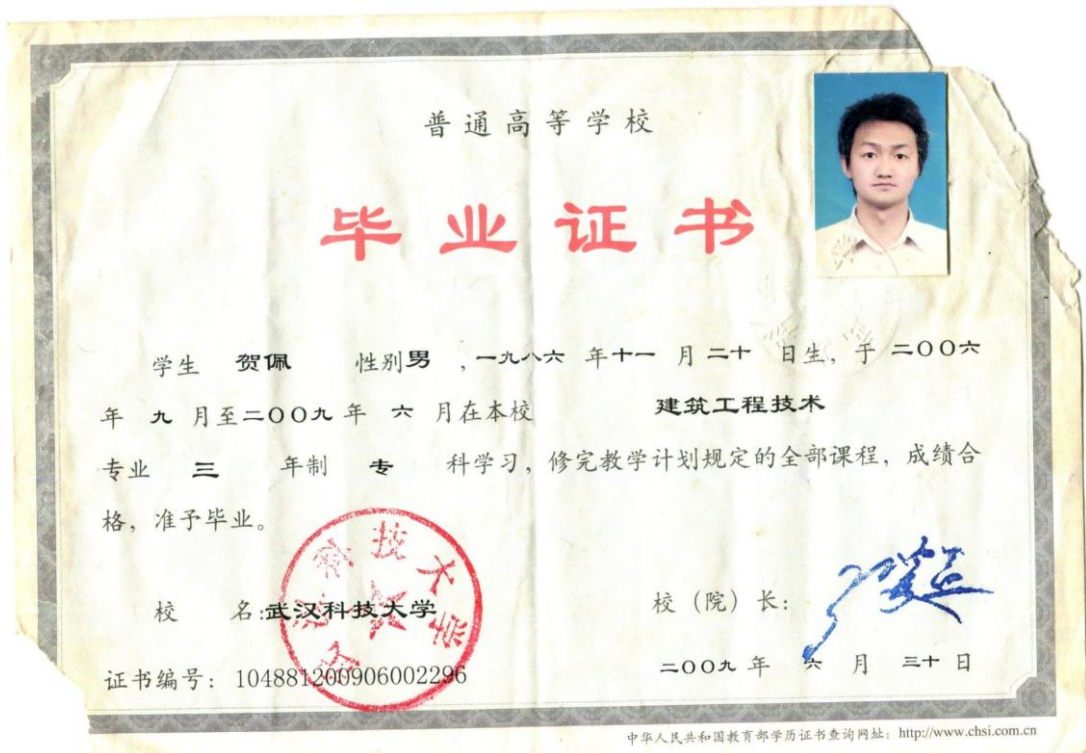 普通高等学校
毕业证书
学生 贺佩 性别男，一九八六 年十一 月二十 日生，于 二〇〇六
年 九 月至二〇〇九 年 六 月在本校 建筑工程技术
专业 三 年制 专 科学习，修完教学计划规定的全部课程，成绩合
格，准予毕业。
校 名:武汉科技大学
校（院）长：
证书编号：104881200906002296
二〇〇九 年 六 月 三十 日
中华人民共和国教育部学历证书查询网址：http://www.chsi.com.cn